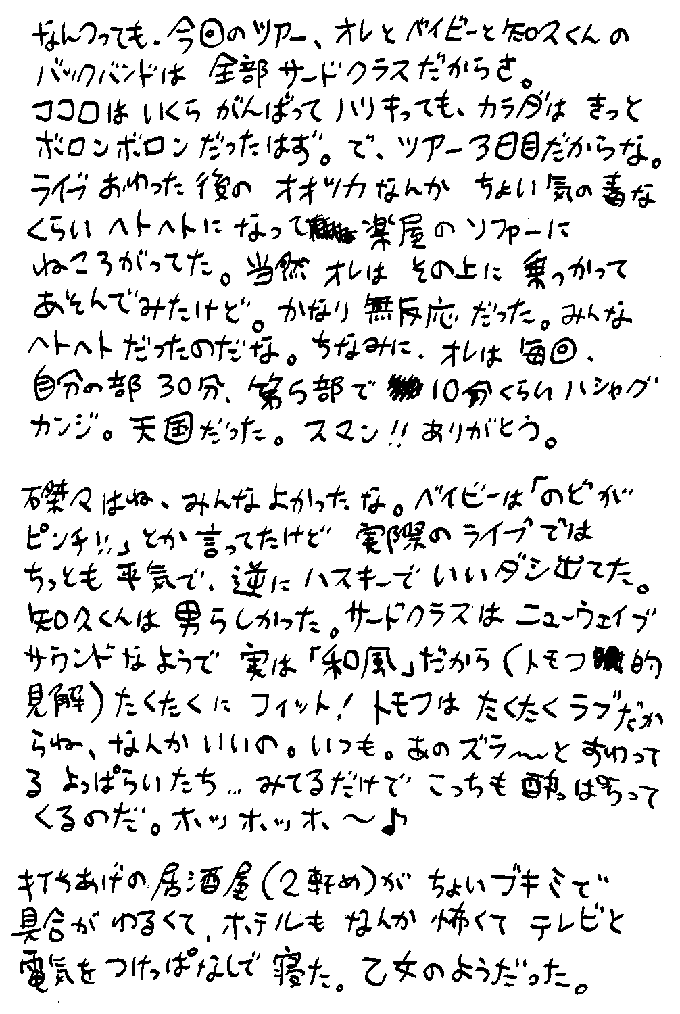 なんつっても、今回のツアー、オレとベイビーと知久くんの
バックバンドは 全部 サードクラスだからさ。
ココロは いくら がんばって ハリキっても、カラダは きっと
ボロンボロン だったはず。で、ツアー3日目だからな。
ライブ おわった 後の オオツカなんか ちょい気の毒な
くらい ヘトヘトに なって 楽屋の ソファーに
ねころがってた。当然 オレは その上に 乗っかって
あそんでみたけど。かなり 無反応 だった。みんな
ヘトヘト だったのだな。ちなみに、オレは 毎回、
自分の部 30分、第5部で 10分くらい ハシャグ
カンジ。天国だった。スマン!! ありがとう。
磔々はね、みんなよかったな。ベイビーは「のどが
ピンチ!!」とか 言ってたけど 実際の ライブでは
ちっとも 平気で、逆に ハスキーで いいダシ出てた。
知久くんは 男らしかった。サードクラスは ニューウェイブ
サウンドなようで 実は「和風」だから(トモフ的
見解)たくたくに フィット! トモフは たくたくラブだか
らね、なんか いいの。いつも。あの ズラ〜〜と すわって
る よっぱらいたち… みてるだけで こっちも 酔っぱらって
くるのだ。ホッ ホッ ホ 〜♪
打ちあげの 居酒屋(2軒め)が ちょい ブキミで
具合が わるくて、ホテルも なんか 怖くて テレビと
電気を つけっぱなしで 寝た。乙女のようだった。